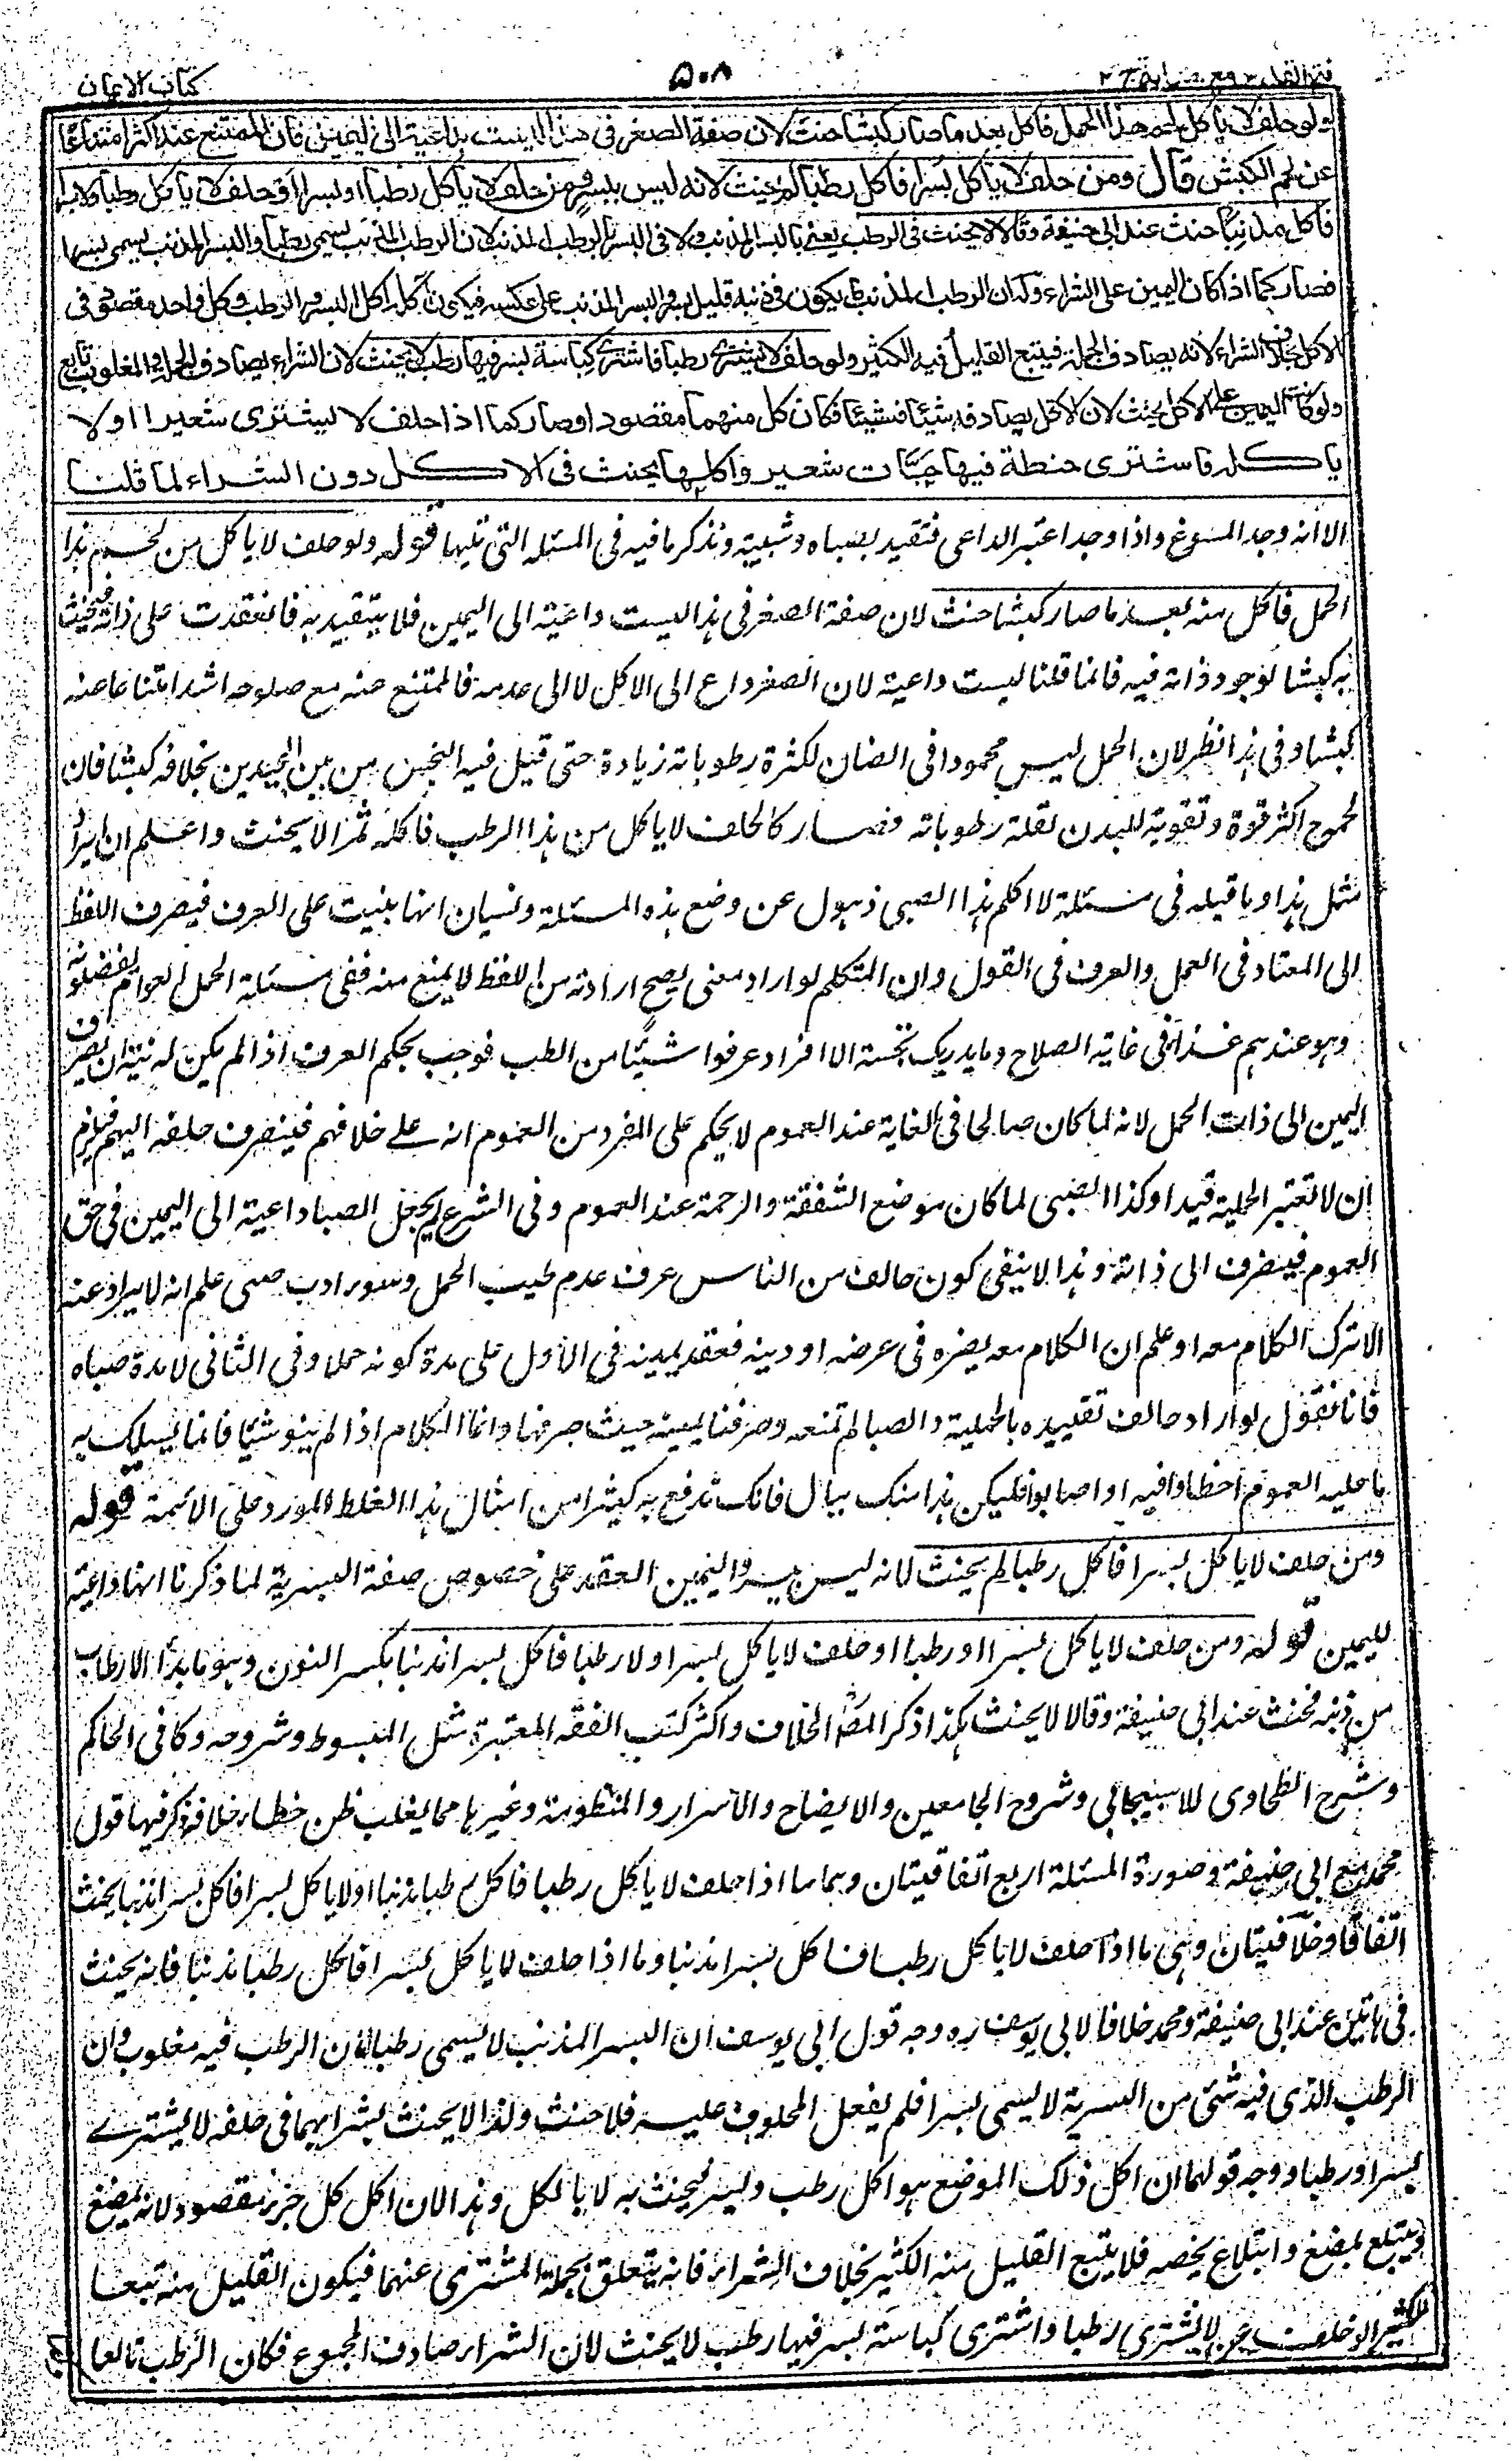 كتاب الايمان
۵۰۸
فتح القدير مع هداية ج ٢
ولو حلف لا يأكل لحم هذا الحمل فاكل بعد ما صار كبشا حنث لان صفة الصغر فى هذا ليست بداعية الى اليمين فان الممتنع عنه اكثر امتناعا
عن لحم الكبش قال ومن حلف لا يأكل بسرا فاكل رطبا لم يحنث لانه ليس ببسر ومن حلف لا يأكل رطبا او بسرا او حلف لا يأكل رطبا ولا بسرا
فاكل مذنبا حنث عند ابى حنيفة وقالا لا يحنث فى الرطب يعنى بالبسر المذنب ولا فى البسر بالرطب المذنب لان الرطب المذنب يسمى رطبا والبسر المذنب يسمى بسرا
فصار كما اذا كان اليمين على الشراء وله ان الرطب المذنب ما يكون فى ذنبه قليل بسر والبسر المذنب على عكسه فيكون آكله آكل البسر والرطب وكل واحد مقصود فى
الاكل بخلاف الشراء لانه يصادف الجملة فيتبع القليل فيه الكثير ولو حلف لا يشترى رطبا فاشترى كباسة بسر فيها رطب لا يحنث لان الشراء يصادف الجملة والمغلوب تابع
ولو كانت اليمين على الاكل يحنث لان الاكل يصادفه شيئا فشيئا فكان كل منهما مقصودا وصار كما اذا حلف لا يشترى شعيرا او لا
يأكله فاشترى حنطة فيها حبّات شعير واكلها يحنث فى الاكل دون الشراء لما قلنا
الا انه وجد المسوغ واذا وجد اعتبر الداعى فتقيد بصباه وشبيبته ونذكر ما فيه فى المسئلة التى تليها قوله ولو حلف لا ياكل من لحم هذا
الحمل فاكل منه بعد ما صار كبشا حنث لان صفة الصغر فى هذا ليست داعية الى اليمين فلا يتقيد به فانعقدت على ذاته فيحنث
به كبشا لوجود ذاته فيه فانما قلنا ليست داعية لان الصغر داع الى الاكل لا الى عدمه فالممتنع عنه مع صلوحه اشد امتناعا عنه
كبشا وفى هذا نظر لان الحمل ليس محمودا فى الضان لكثرة رطوباته زيادة حتى قيل فيه النحس من بين الجيدين بخلافه كبشا فان
لحمه ح اكثر قوة وتقوية للبدن لقلة رطوباته فصار كالحلف لا ياكل من هذا الرطب فاكله تمرا لا يحنث واعلم ان ايراد
مثل هذا وما قبله فى مسئلة لا اكلم هذا الصبى ذهول عن وضع هذه المسئلة ونسيان انها بنيت على العرف فيصرف اللفظ
الى المعتاد فى العمل والعرف فى القول وان المتكلم لو اراد معنى يصح ارادته من اللفظ لا يمنع منه ففى مسئلة الحمل العوام يفضلونه
وهو عندهم غذاء فى غاية الصلاح وما يدريك نحسه الا افراد عرفوا شيئا من الطب فوجب بحكم العرف اذا لم يكن له نية ان يصرف
اليمين الى ذات الحمل لانه لما كان صالحا فى الغاية عند العموم لا يحكم على المفرد من العموم انه على خلافهم فينصرف حلفه اليهم فيلزم
ان لا تعتبر الحملية قيدا وكذا الصبى لما كان موضع الشفقة والرحمة عند العموم وفى الشرع لم يجعل الصبا داعية الى اليمين فى حق
العموم فينصرف الى ذاته وهذا لا ينفى كون حالف من الناس عرف عدم طيب الحمل وسوء ادب صبى علم انه لا يرادعه
الا ترك الكلام معه او علم ان الكلام معه يضره فى عرضه او دينه فعقد يمينه فى الاول على مدة كونه حملا وفى الثانى لا مدة صباه
فانا نقول لو اراد حالف تقييده بالحملية والصبا لم نمنعه وصرفنا يمينه حيث صرفها وانما الكلام اذا لم ينو شيئا فانما يسلك به
ما عليه العموم اخطأوا فيه او اصابوا فليكن هذا منك ببال فانك تدفع به كثيرا من امثال هذا الغلط المورد على الائمة قوله
ومن حلف لا ياكل بسرا فاكل رطبا لم يحنث لانه ليس ببسر واليمين انعقد على خصوص صفة البسرية لما ذكرنا انها داعية
لليمين قوله ومن حلف لا ياكل بسرا او رطبا او حلف لا ياكل بسرا ولا رطبا فاكل بسرا مذنبا بكسر النون وهو ما بدأ الارطاب
من ذنبه فحنث عند ابى حنيفة وقالا لا يحنث هكذا ذكر المص الخلاف واكثر كتب الفقه المعتبرة مثل المبسوط وشروحه وكافى الحاكم
وشرح الطحاوى للاسبيجابى وشروح الجامعين والايضاح والاسرار والمنظومة وغيرها مما يغلب ظن خطاء خلافه ذكر فيها قول
محمد مع ابى حنيفة فصورة المسئلة اربع اتفاقيتان وهما ما اذا حلف لا ياكل رطبا فاكل رطبا مذنبا او لا ياكل بسرا فاكل بسرا مذنبا يحنث
اتفاقا وخلافيتان وهى ما اذا حلف لا ياكل رطبا فاكل بسرا مذنبا وما اذا حلف لا ياكل بسرا فاكل رطبا مذنبا فانه يحنث
فى هاتين عند ابى حنيفة ومحمد خلافا لابى يوسف ره وجه قول ابى يوسف ان البسر المذنب لا يسمى رطبا لان الرطب فيه مغلوب وان
الرطب الذى فيه شئ من البسرية لا يسمى بسرا فلم يفعل المحلوف عليه فلا حنث ولذا لا يحنث بشرائهما فى حلفه لا يشترى
بسرا او رطبا ووجه قولهما ان اكل ذلك الموضع هو اكل رطب وبسر فيحنث به لا بالكل وهذا لان اكل كل جزء مقصود لانه يمضغ
ويبتلع بمضغ وابتلاع يخصه فلا يتبع القليل منه الكثير بخلاف الشراء فانه يتعلق بجملة المشترى عنهما فيكون القليل منه تبعا
للكثير لو حلف لا يشترى رطبا واشترى كباسة بسر فيها رطب لا يحنث لان الشراء صادف المجموع فكان الرطب تابعا